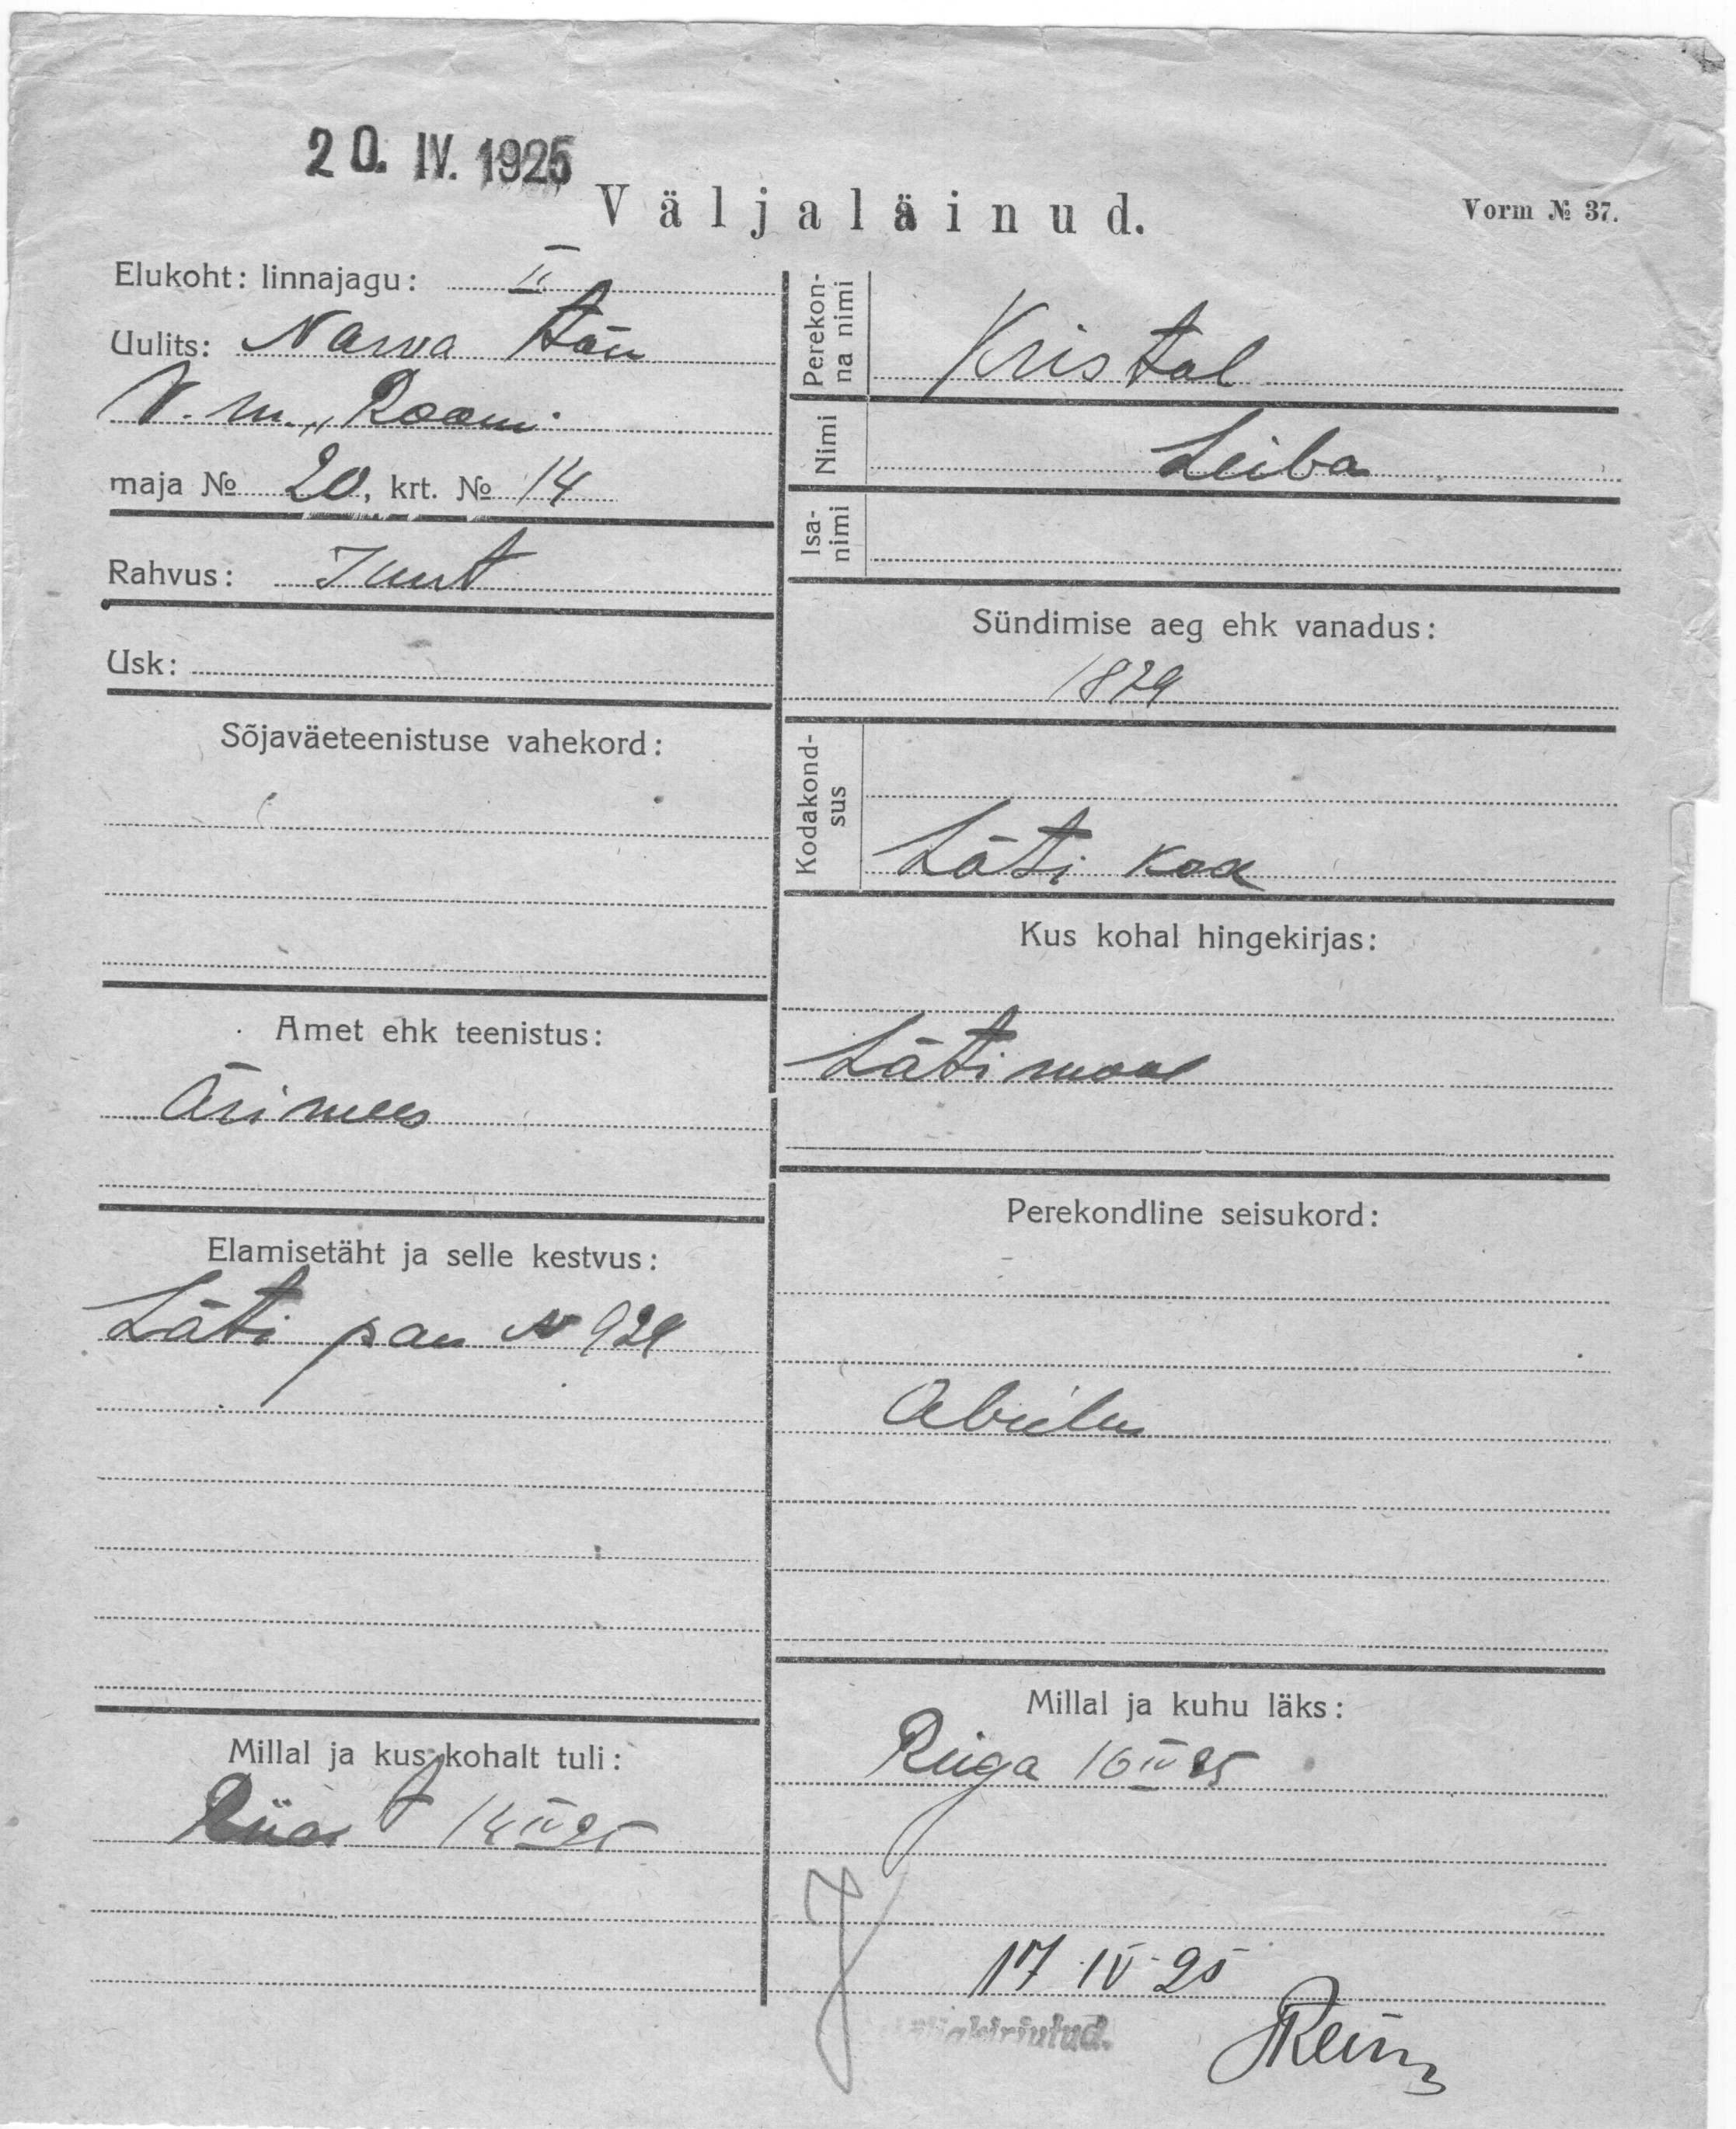 20. IV. 1925
Väljaläinud.
Vorm № 37.
Elukoht: linnajagu: II
Uulits: Narva tän
V. m. „Room
maja № 20, krt. № 14
Rahvus: Juut
Usk:
Sõjaväeteenistuse vahekord:
Amet ehk teenistus:
Ärimees
Elamisetäht ja selle kestvus:
Läti pass N 929
Millal ja kus kohalt tuli:
14 IV 25
Perekon-
na nimi
Kristal
Nimi
Leiba
Isa-
nimi
Sündimise aeg ehk vanadus:
1879
Kodakond-
sus
Läti kod
Kus kohal hingekirjas:
Lätimaal
Perekondline seisukord:
Abielus
Millal ja kuhu läks:
Riiga 16 IV 25
17 IV 25